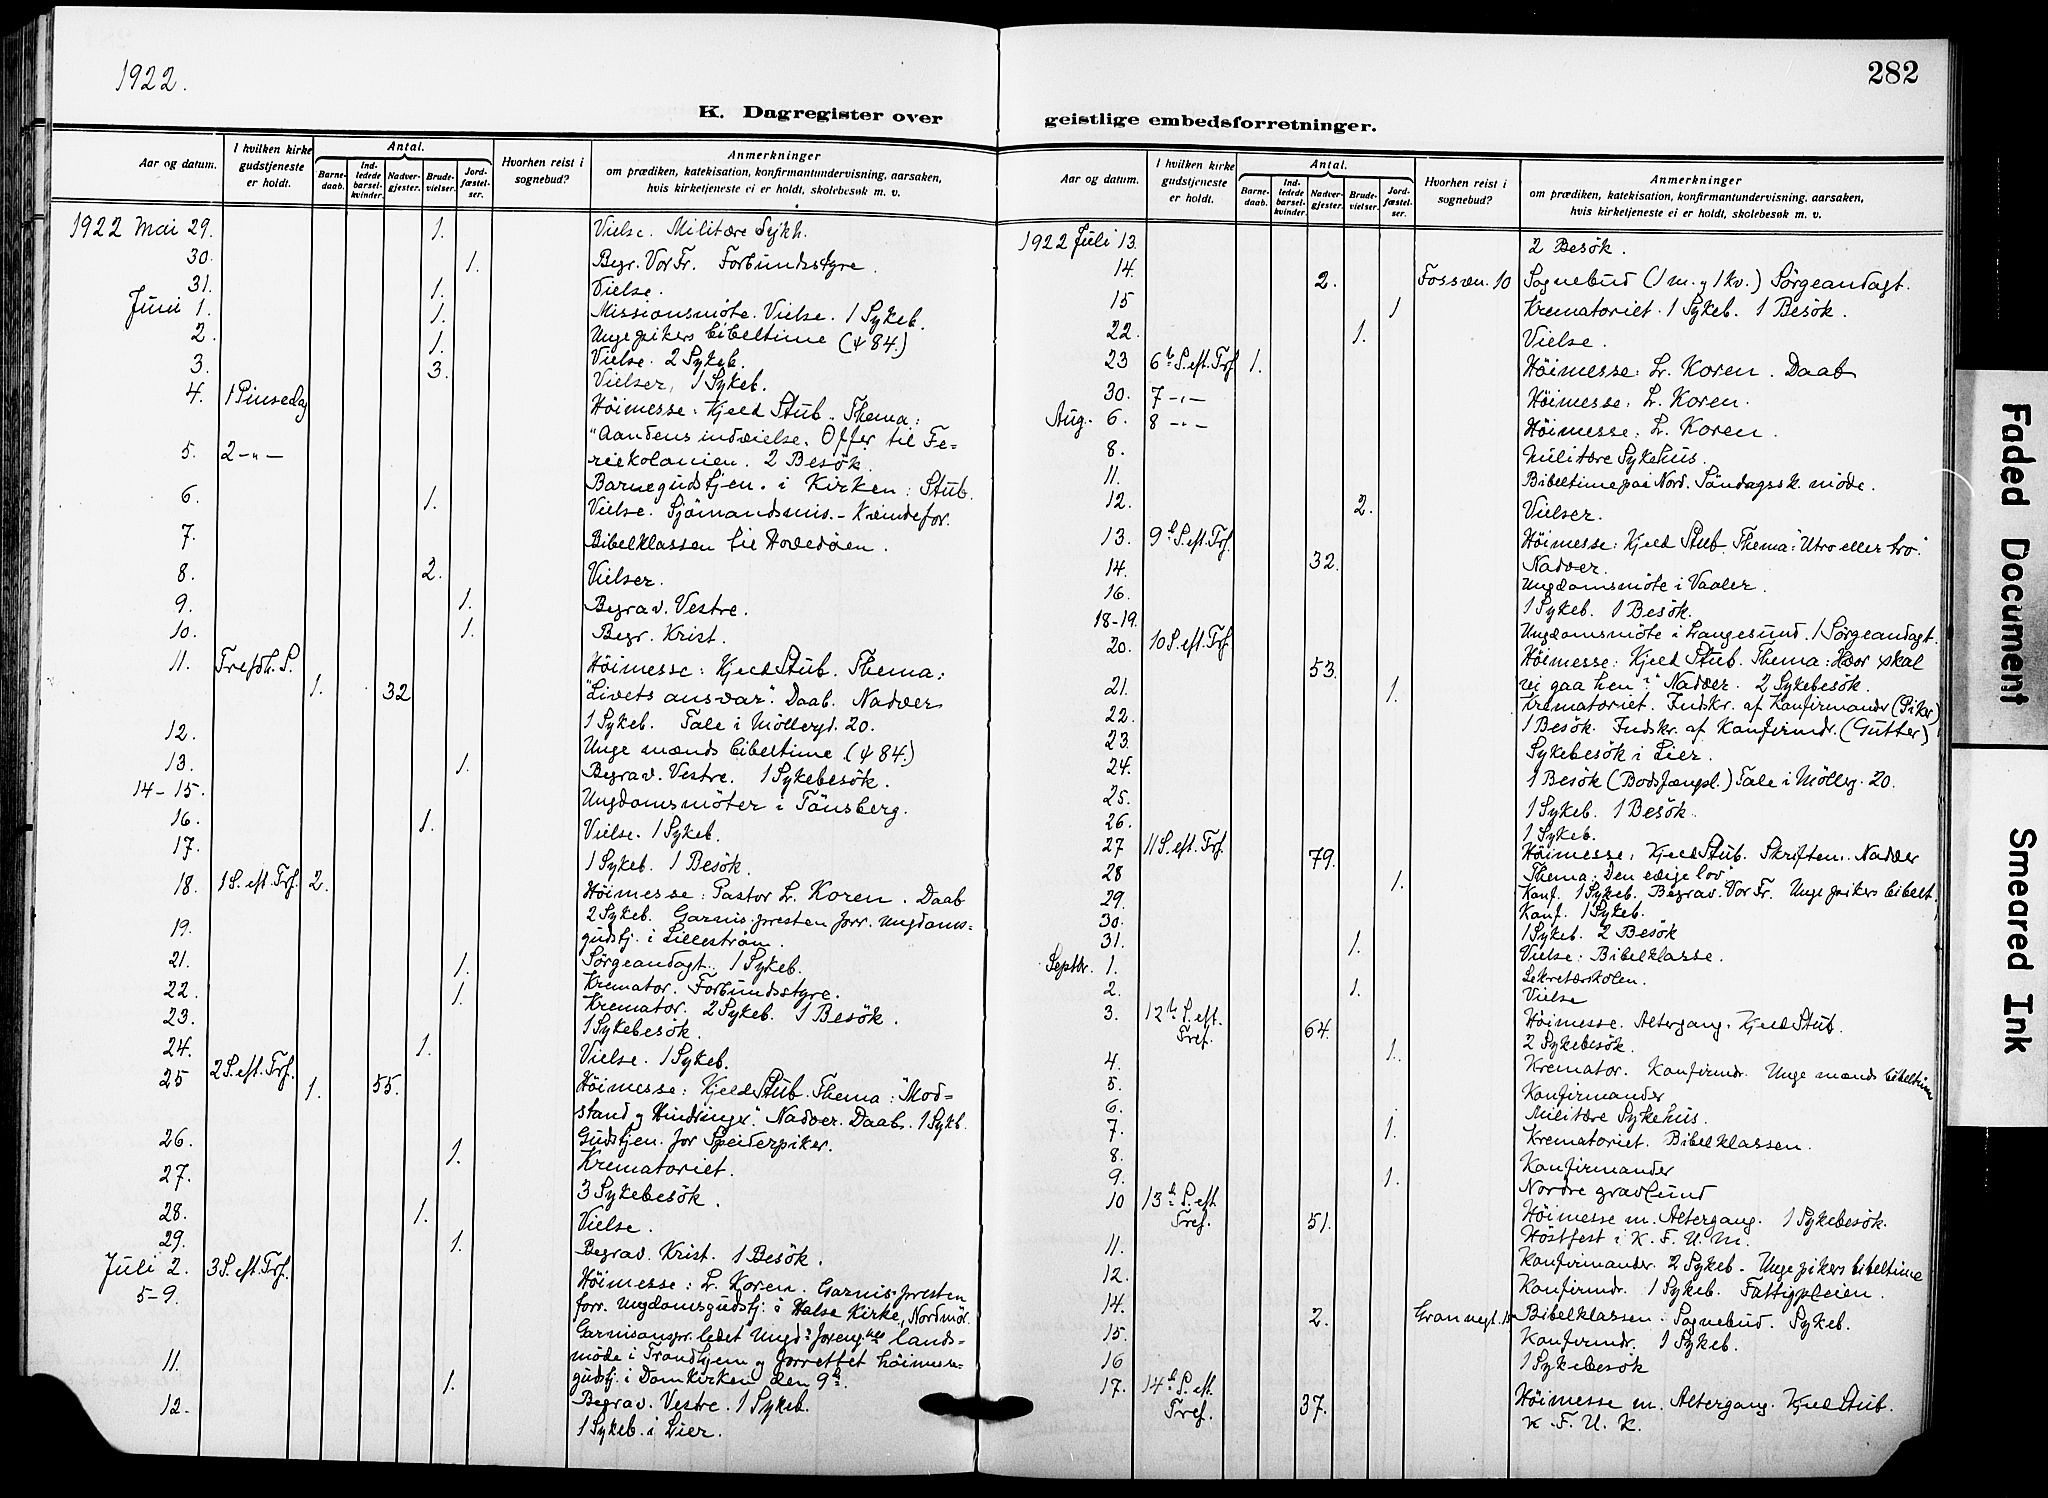 1922.
282
K. Dagregister over
geistlige embedsforretninger.
Aar og datum.
I hvilken kirke gudstjeneste er holdt.
Antal.
Barnedaab.
Indledede barselkvinder.
Nadvergjester.
Brudevielser.
Jordfæstelser.
Hvorhen reist i sognebud?
Anmerkninger
om prædiken, katekisation, konfirmantundervisning, aarsaken,
hvis kirketjeneste ei er holdt, skolebesøk m. v.
1922 Mai 29. 1. Vielse. Militære Sykh.
30. 1. Begr. Vor Fr. Forbundsstyre.
31. 1. Vielse.
Juni 1. 1. Missionsmöte. Vielse. 1 Sykeb.
2. 1. Unge pikers bibeltime (ψ 84.)
3. 3. Vielse. 2 Sykeb.
Vielser, 1 Sykeb.
4. 1 Pinsedag Höimesse: Kjeld Stub. Thema:
"Aandens indvielse. Offer til Fe-
5. 2 -"- riekolonien. 2 Besök.
Barnegudstjen. i Kirken: Stub.
6. 1. Vielse. Sjömandsmis.-Kvindefor.
7. Bibelklassen til Hovedöen.
8. 2. Vielser.
9. 1. Begrav. Vestre.
10. 1. Begr. Krist.
11. Trefoh. S. Höimesse: Kjeld Stub. Thema:
1. 32 "Livets ansvar". Daab. Nadver
1 Sykeb. Tale i Möllergt. 20.
12. Unge mænds bibeltime (ψ 84.)
13. 1. Begrav. Vestre. 1 Sykebesök.
14-15. Ungdomsmöter i Tönsberg.
16. 1. Vielse. 1 Sykeb.
17. 1 Sykeb. 1 Besök.
18. 1 S. eft. Trf. 2. Höimesse: Pastor L. Koren. Daab
2 Sykeb. Garnis.presten forr. Ungdoms-
19. gudstj. i Lilleström.
21. 1. Sörgeandagt. 1 Sykeb.
22. 1. Kremator. Forbundsstyre.
Kremator. 2 Sykeb. 1 Besök.
23. 1 Sykebesök.
24. 1. Vielse. 1 Sykeb.
25 2 S. eft. Trf. 1. 55. Höimesse: Kjeld Stub. Thema: "Mod-
stand og Hindringer". Nadver. Daab. 1 Sykb.
26. 1. Gudstjen. for Speiderpiker.
Krematoriet.
27. 3 Sykebesök.
28. 1. Vielse.
29. 1. Begrav. Krist. 1 Besök.
Juli 2. 3 S. eft. Trf. Höimesse: L. Koren. Garnis.presten
5-9. forr. Ungdomsgudstj. i Halse Kirke, Nordmör.
Garnisonspr. ledet Ungd.s foreng.nes lands-
möde i Trondhjem og forrettet höimesse-
11. 1. gudstj. i Domkirken den 9de.
12. Begrav. Vestre. 1 Sykeb.
1 Sykeb. i Lier.
Aar og datum.
I hvilken kirke gudstjeneste er holdt.
Antal.
Barnedaab.
Indledede barselkvinder.
Nadvergjester.
Brudevielser.
Jordfæstelser.
Hvorhen reist i sognebud?
Anmerkninger
om prædiken, katekisation, konfirmantundervisning, aarsaken,
hvis kirketjeneste ei er holdt, skolebesøk m. v.
1922 Juli 13. 2 Besök.
14. 2. Fossvn. 10 Sognebud (1 m. og 1 kv.) Sörgeandagt.
15 1 Krematoriet. 1 Sykeb. 1 Besök.
22. 1. Vielse.
23 6te S. eft. Trf. 1. Höimesse: L. Koren. Daab
30. 7 -"- Höimesse: L. Koren.
Aug. 6. 8 -"- Höimesse: L. Koren.
8. Militære Sykehus.
11. Bibeltime paa Nord. Söndagssk. möde.
12. 2. Vielser.
13. 9de S. eft. Trf. Höimesse: Kjeld Stub. Thema: "Utro eller tro".
32. Nadver.
14. Ungdomsmöte i Vaaler.
16. 1 Sykeb. 1 Besök.
18-19. Ungdomsmöte i Langesund. 1 Sörgeandagt.
20. 10 S. eft. Trf. 53. Höimesse: Kjeld Stub. Thema: Hvor skal
vi gaa hen?" Nadver. 2 Sykebesök.
21. 1. Krematoriet. Indskr. af Konfirmander (Piker)
22. 1 Besök. Indskr. af Konfirmdr. (Gutter)
23. Sykebesök i Lier.
24. 1 Besök (Bodsfængsl.) Tale i Möllerg. 20.
25. 1 Sykeb. 1 Besök.
26. 1 Sykeb.
27 11 S. eft. Trf. 79. Höimesse: Kjeld Stub. Skriftem. Nadver
Thema: Den evige lov
28 1. Konf. 1 Sykeb. Begrav. Vor Fr. Unge pikers bibelt.
29. Konf. 1 Sykeb.
30. 1 Sykeb. 2 Besök
31. 1. Vielse: Bibelklasse.
Septbr. 1. Sekretærskolen.
2. 1. Vielse
3. 12te S. eft. Tref. 64. Höimesse. Altergang. Kjeld Stub.
2 Sykebesök.
4. 1. Kremator. Konfirmdr. Unge mænds bibeltime
5. Konfirmander
6. Militære Sykehus.
7. 1. Krematoriet. Bibelklassen.
8. Konfirmander
9. 1. Nordre gravlund
10 13de S. eft. Tref. 51. Höimesse m. Altergang. 1 Sykebesök.
Höstfest i K. F. U. M.
11. Konfirmander. 2 Sykeb. - Unge pikers bibeltime
12. Konfirmdr. 1 Sykeb. Fattigpleien.
14. 2. Bibelklassen. Sognebud. Sykeb.
15. Konfirmdr. 1 Sykeb.
16 1 Sykebesök
17. 14de S. eft. Tref. 37. Höimesse m. Altergang. Kjeld Stub.
K. F. U. K.
Faded Document
Smeared Ink